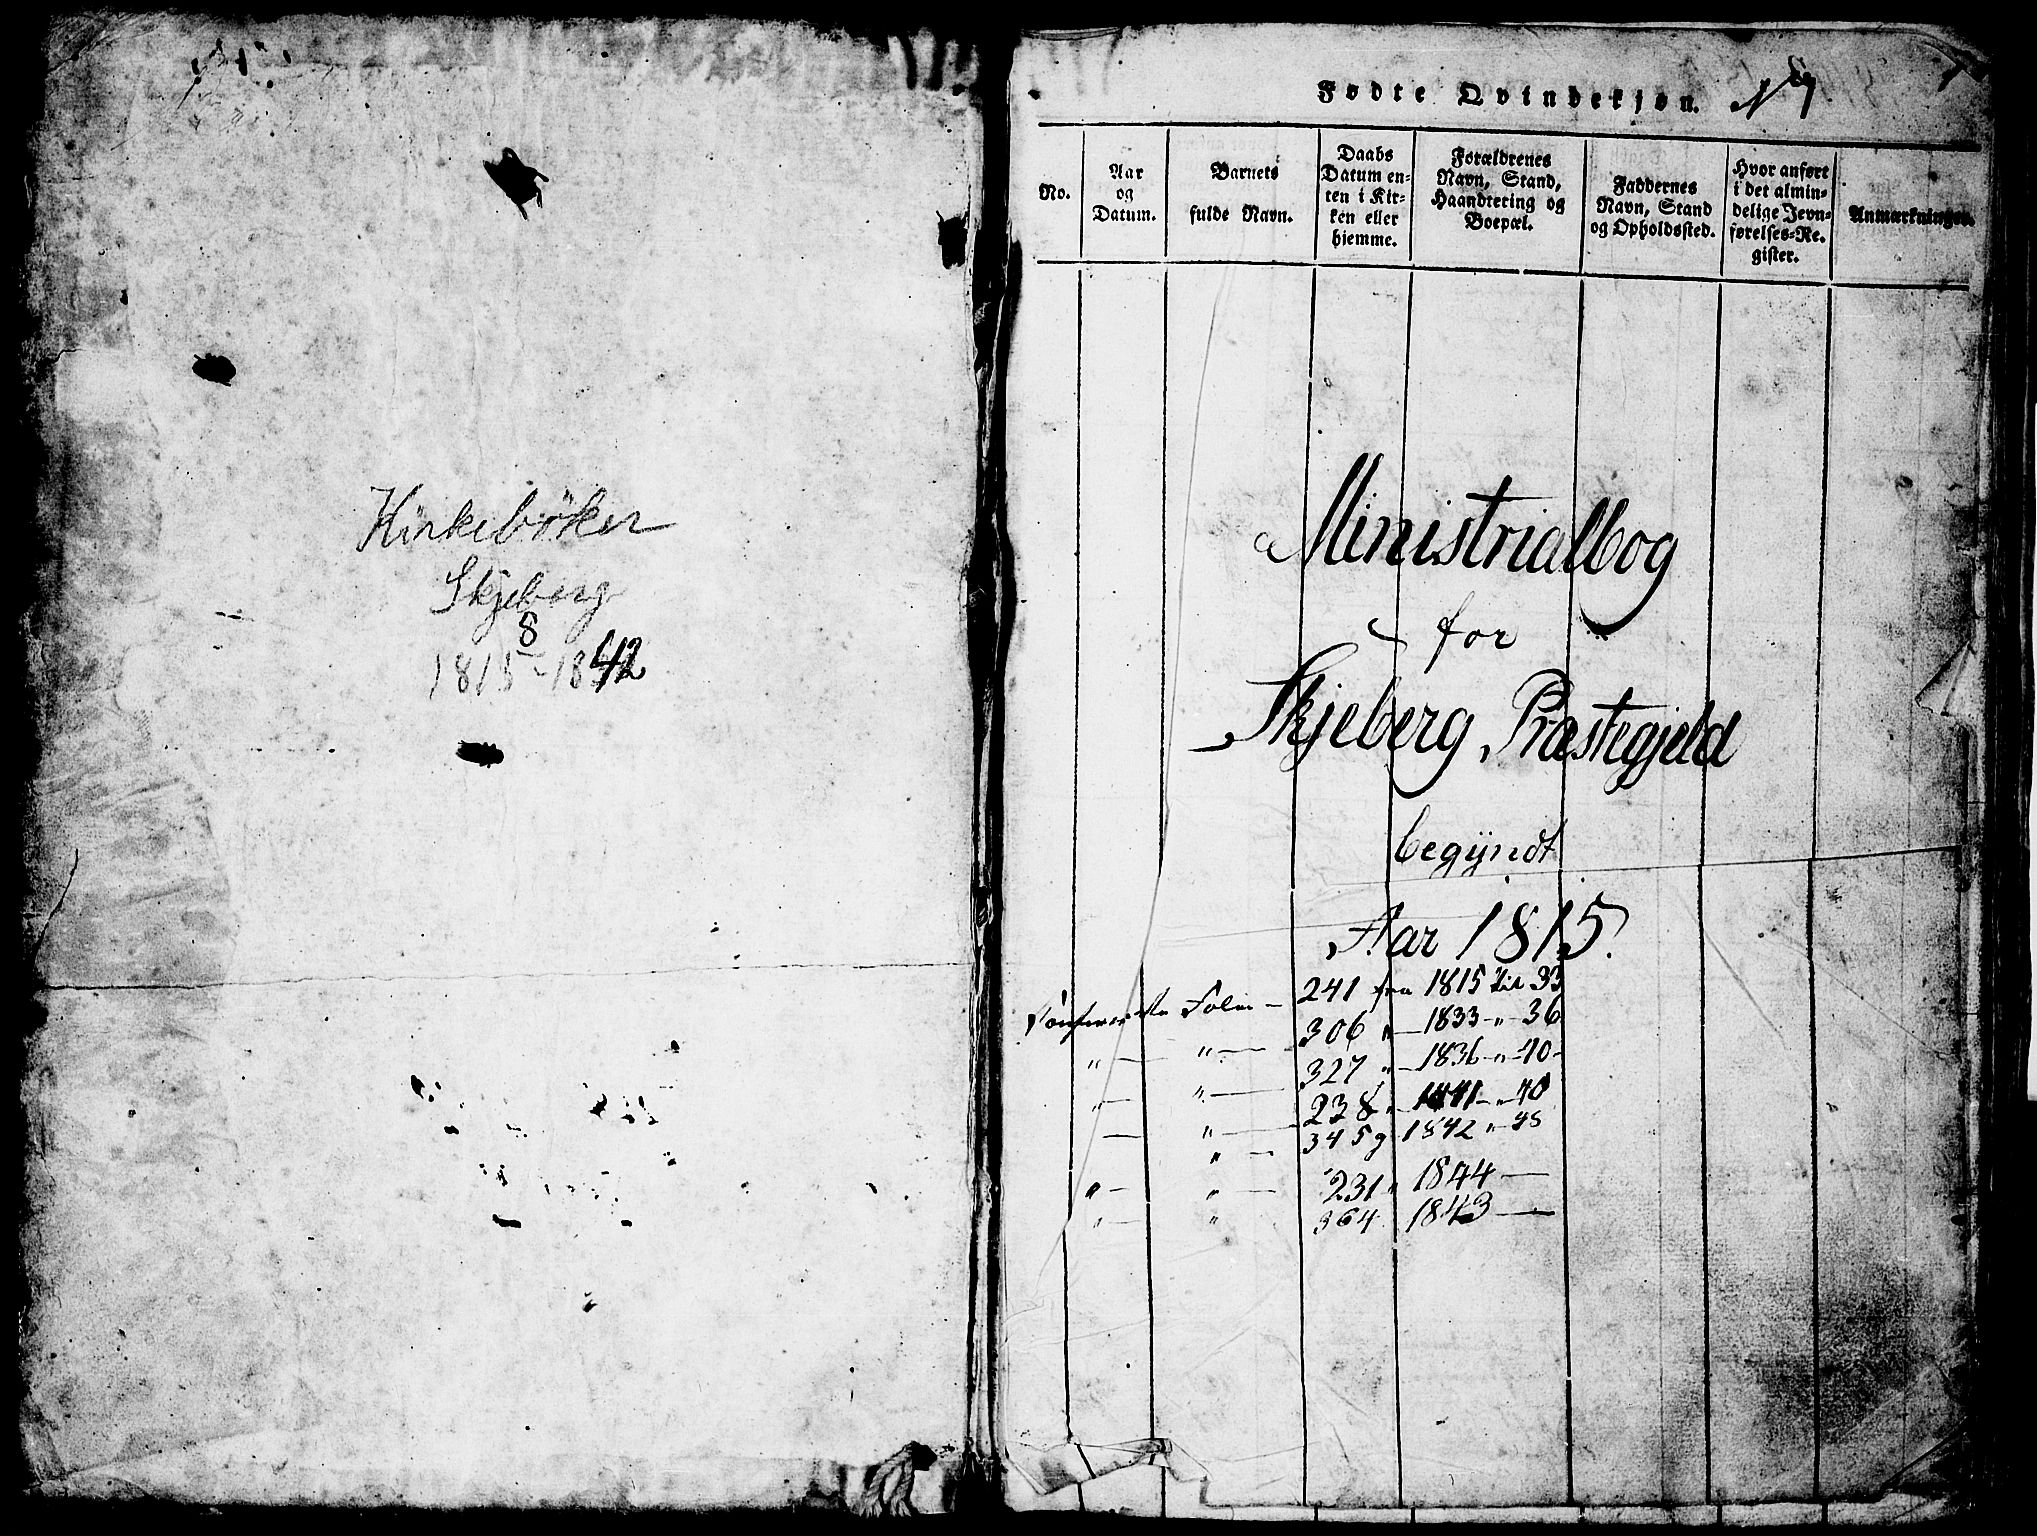 Kirkebøker
Skjeberg
8
1815-1842
Fødte Qvindekjøn.
No.
Aar
og
Datum.
Barnets
fulde Navn.
Daabs
Datum en-
ten i Kir-
ken eller
hjemme.
Forældrenes
Navn, Stand,
Haandtering og
Boepæl.
Faddernes
Navn, Stand
og Opholdssted.
Hvor anført
i det almin-
delige Jevn-
førelses-Re-
gister.
Anmærkninger.
Ministrialbog
for
Skjeberg Præstegjeld
begyndt
Aar 1815.
Folio — 241 fra 1815 til 33
" — " — 306 " — 1833 — " — 36
" — " — 327 " — 1836 — " — 40 —
— " — 238 " — 1841 — " — 40
" — 345 1842 " — 45
" — " — 231 " 1844 —
" — " 364 1843 —